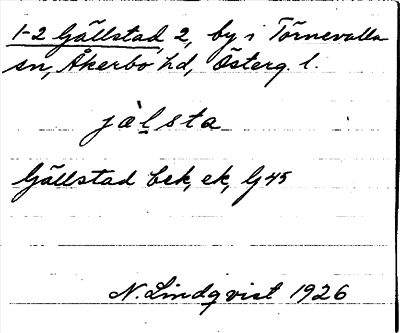 1-2 Gällstad, 2, by i Törnevalla
sn, Åkerbo hd, Österg. l.
jàlsta
Gällstad bek, ek, G 45
N. Lindqvist 1926